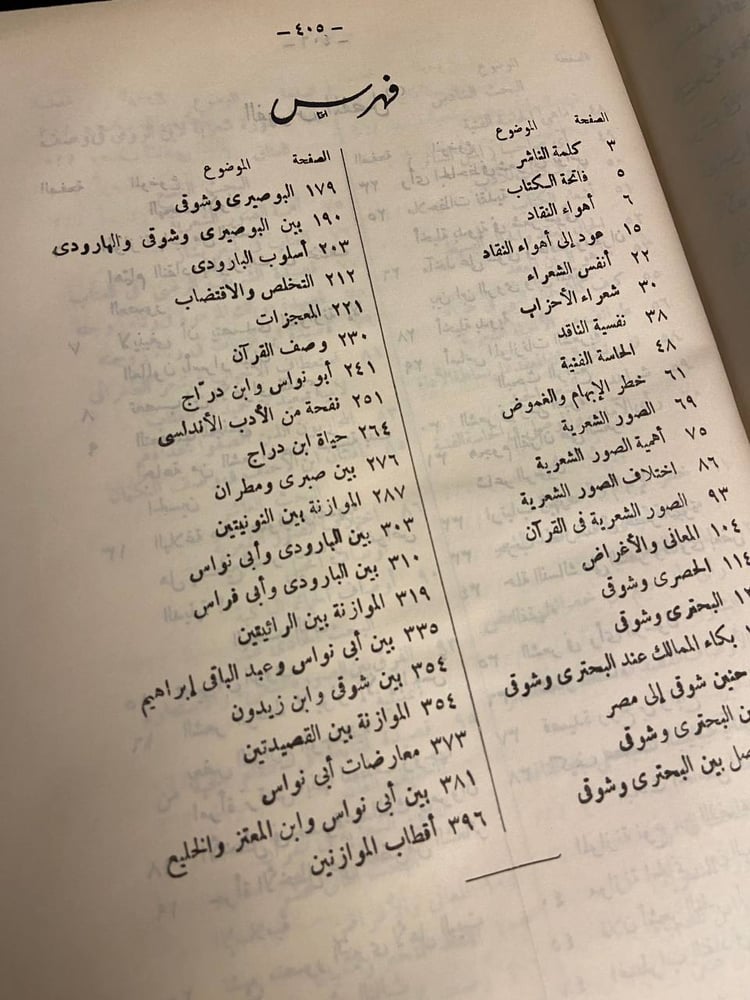 — ٤٠٥ —
فهرس
الصفحة الموضوع
٣ كلمة الناشر
٥ فاتحة الكتاب
٦ أهواء النقاد
١٥ عود إلى أهواء النقاد
٢٢ أنفس الشعراء
٣٠ شعراء الأحزاب
٣٨ نفسية الناقد
٤٨ الحاسة الفنية
٦١ خطر الإبهام والغموض
٦٩ الصور الشعرية
٧٥ أهمية الصور الشعرية
٨٦ اختلاف الصور الشعرية
٩٣ الصور الشعرية فى القرآن
١٠٤ المعانى والأغراض
١١٤ الحصرى وشوقى
البحترى وشوقى
بكاء الممالك عند البحترى وشوقى
حنين شوقى إلى مصر
البحترى وشوقى
بين البحترى وشوقى
الصفحة الموضوع
١٧٩ البوصيرى وشوقى
١٩٠ بين البوصيرى وشوقى والبارودى
٢٠٣ أسلوب البارودى
٢١٢ التخلص والاقتضاب
٢٢١ المعجزات
٢٣٠ وصف القرآن
٢٤١ أبو نواس وابن درّاج
٢٥١ نفحة من الأدب الأندلسى
٢٦٤ حياة ابن دراج
٢٧٦ بين صبرى ومطران
٢٨٧ الموازنة بين النونيتين
٣٠٣ بين البارودى وأبى نواس
٣١٠ بين البارودى وأبى فراس
٣١٩ الموازنة بين الرائيتين
٣٣٥ بين أبى نواس وعبد الباقى إبراهيم
٣٥٤ بين شوقى وابن زيدون
٣٥٤ الموازنة بين القصيدتين
٣٧٣ معارضات أبى نواس
٣٨١ بين أبى نواس وابن المعتز والخليع
٣٩٦ أقطاب الموازنين